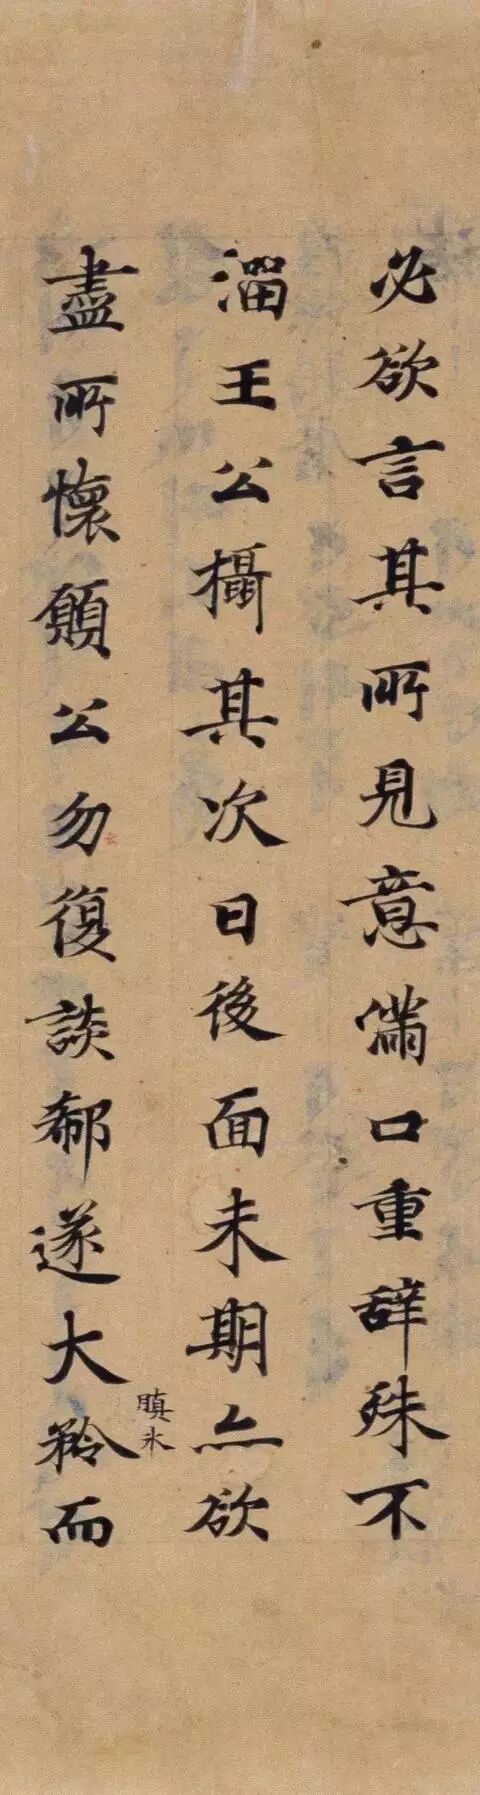 必欲言其所見意滿口重辞殊不
溜王公攝其次曰後面未期亦欲
瞋氷
盡所懷願公勿復談郗遂大矜而